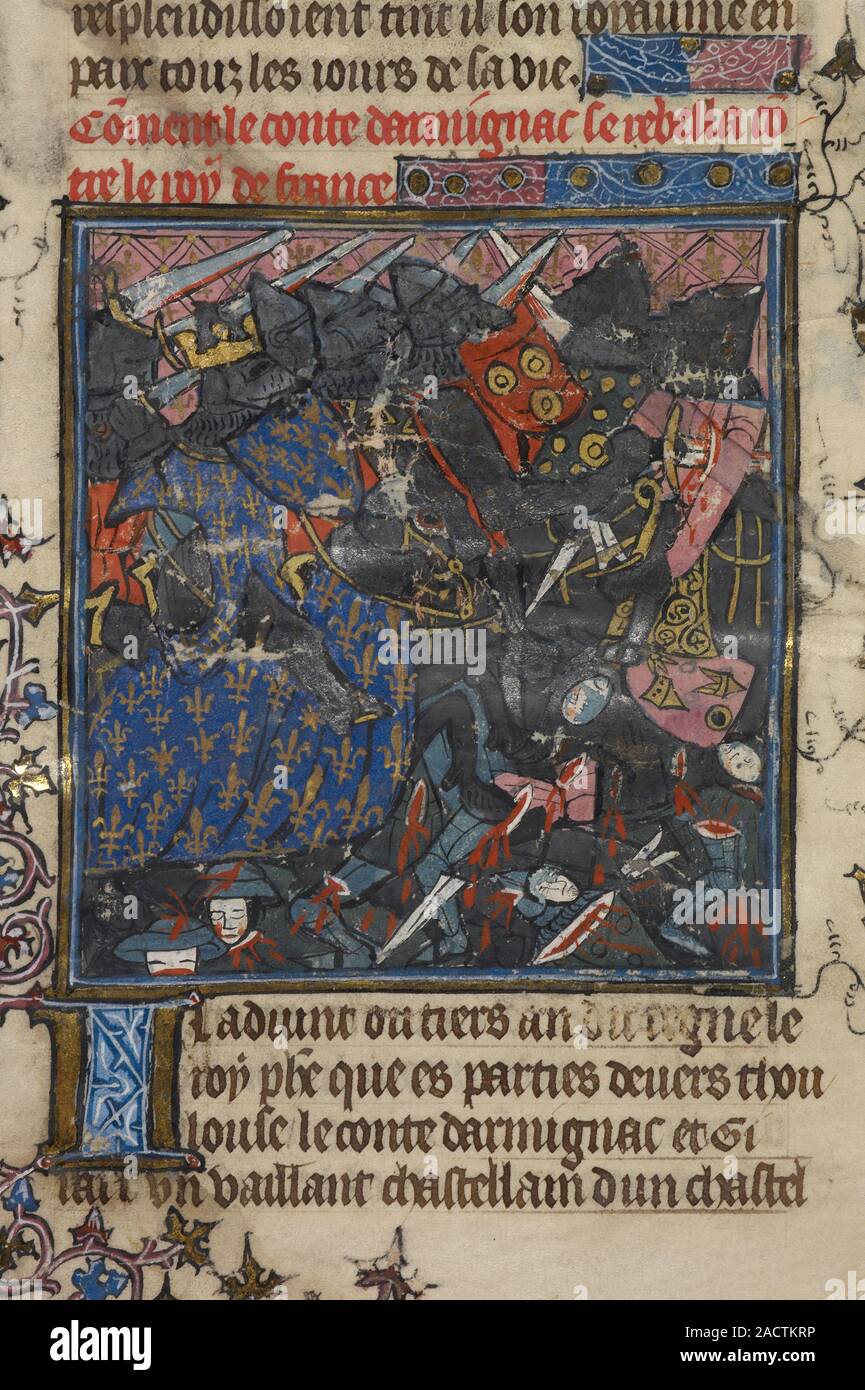 resplendissoient tint il son royaume en
paix touz les iours de sa vie.
Cōment le conte darmignac se rebella cō
tre le roy de france
Il aduint ou tiers an du regne le
roy phē que es parties deuers thou
louse le conte darmignac et Gi
rart vn vaillant chastellain dun chastel
alamy
Image ID: 2ACTKRP
www.alamy.com